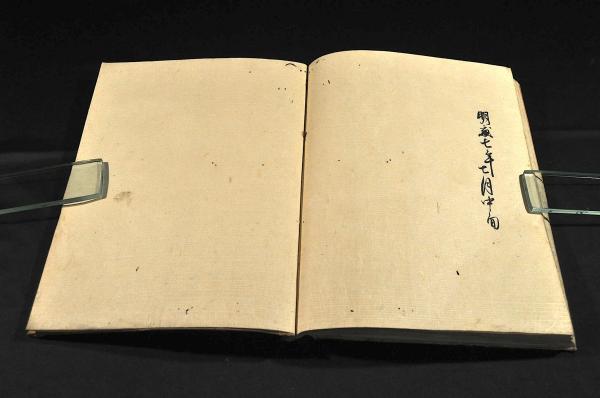 明 七年七月中旬